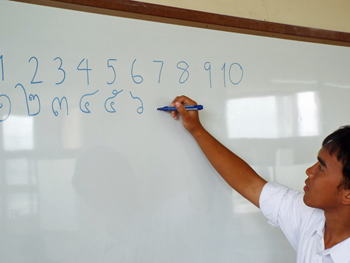 1 2 3 4 5 6 7 8 9 10
๑ ๒ ๓ ๔ ๕ ๖